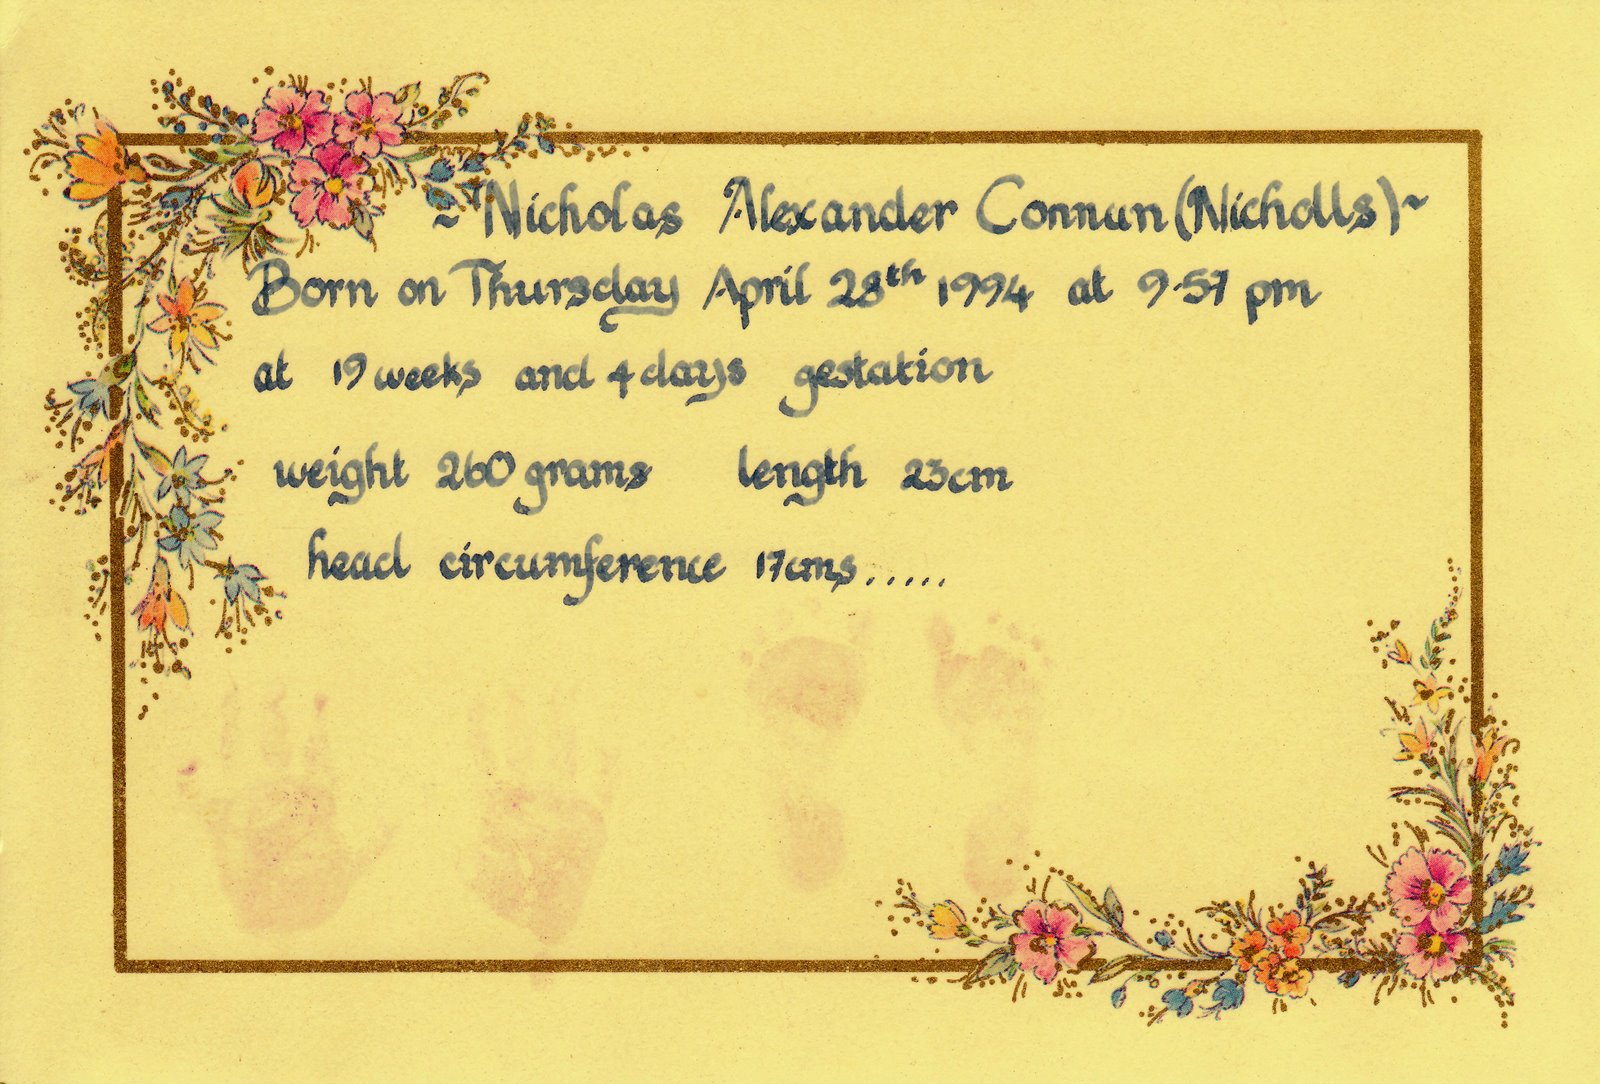 ~ Nicholas Alexander Connun (Nicholls) ~
Born on Thursday April 28th 1994 at 9.57 pm
at 19 weeks and 4 days gestation
weight 260 grams length 23cm
head circumference 17cms.....